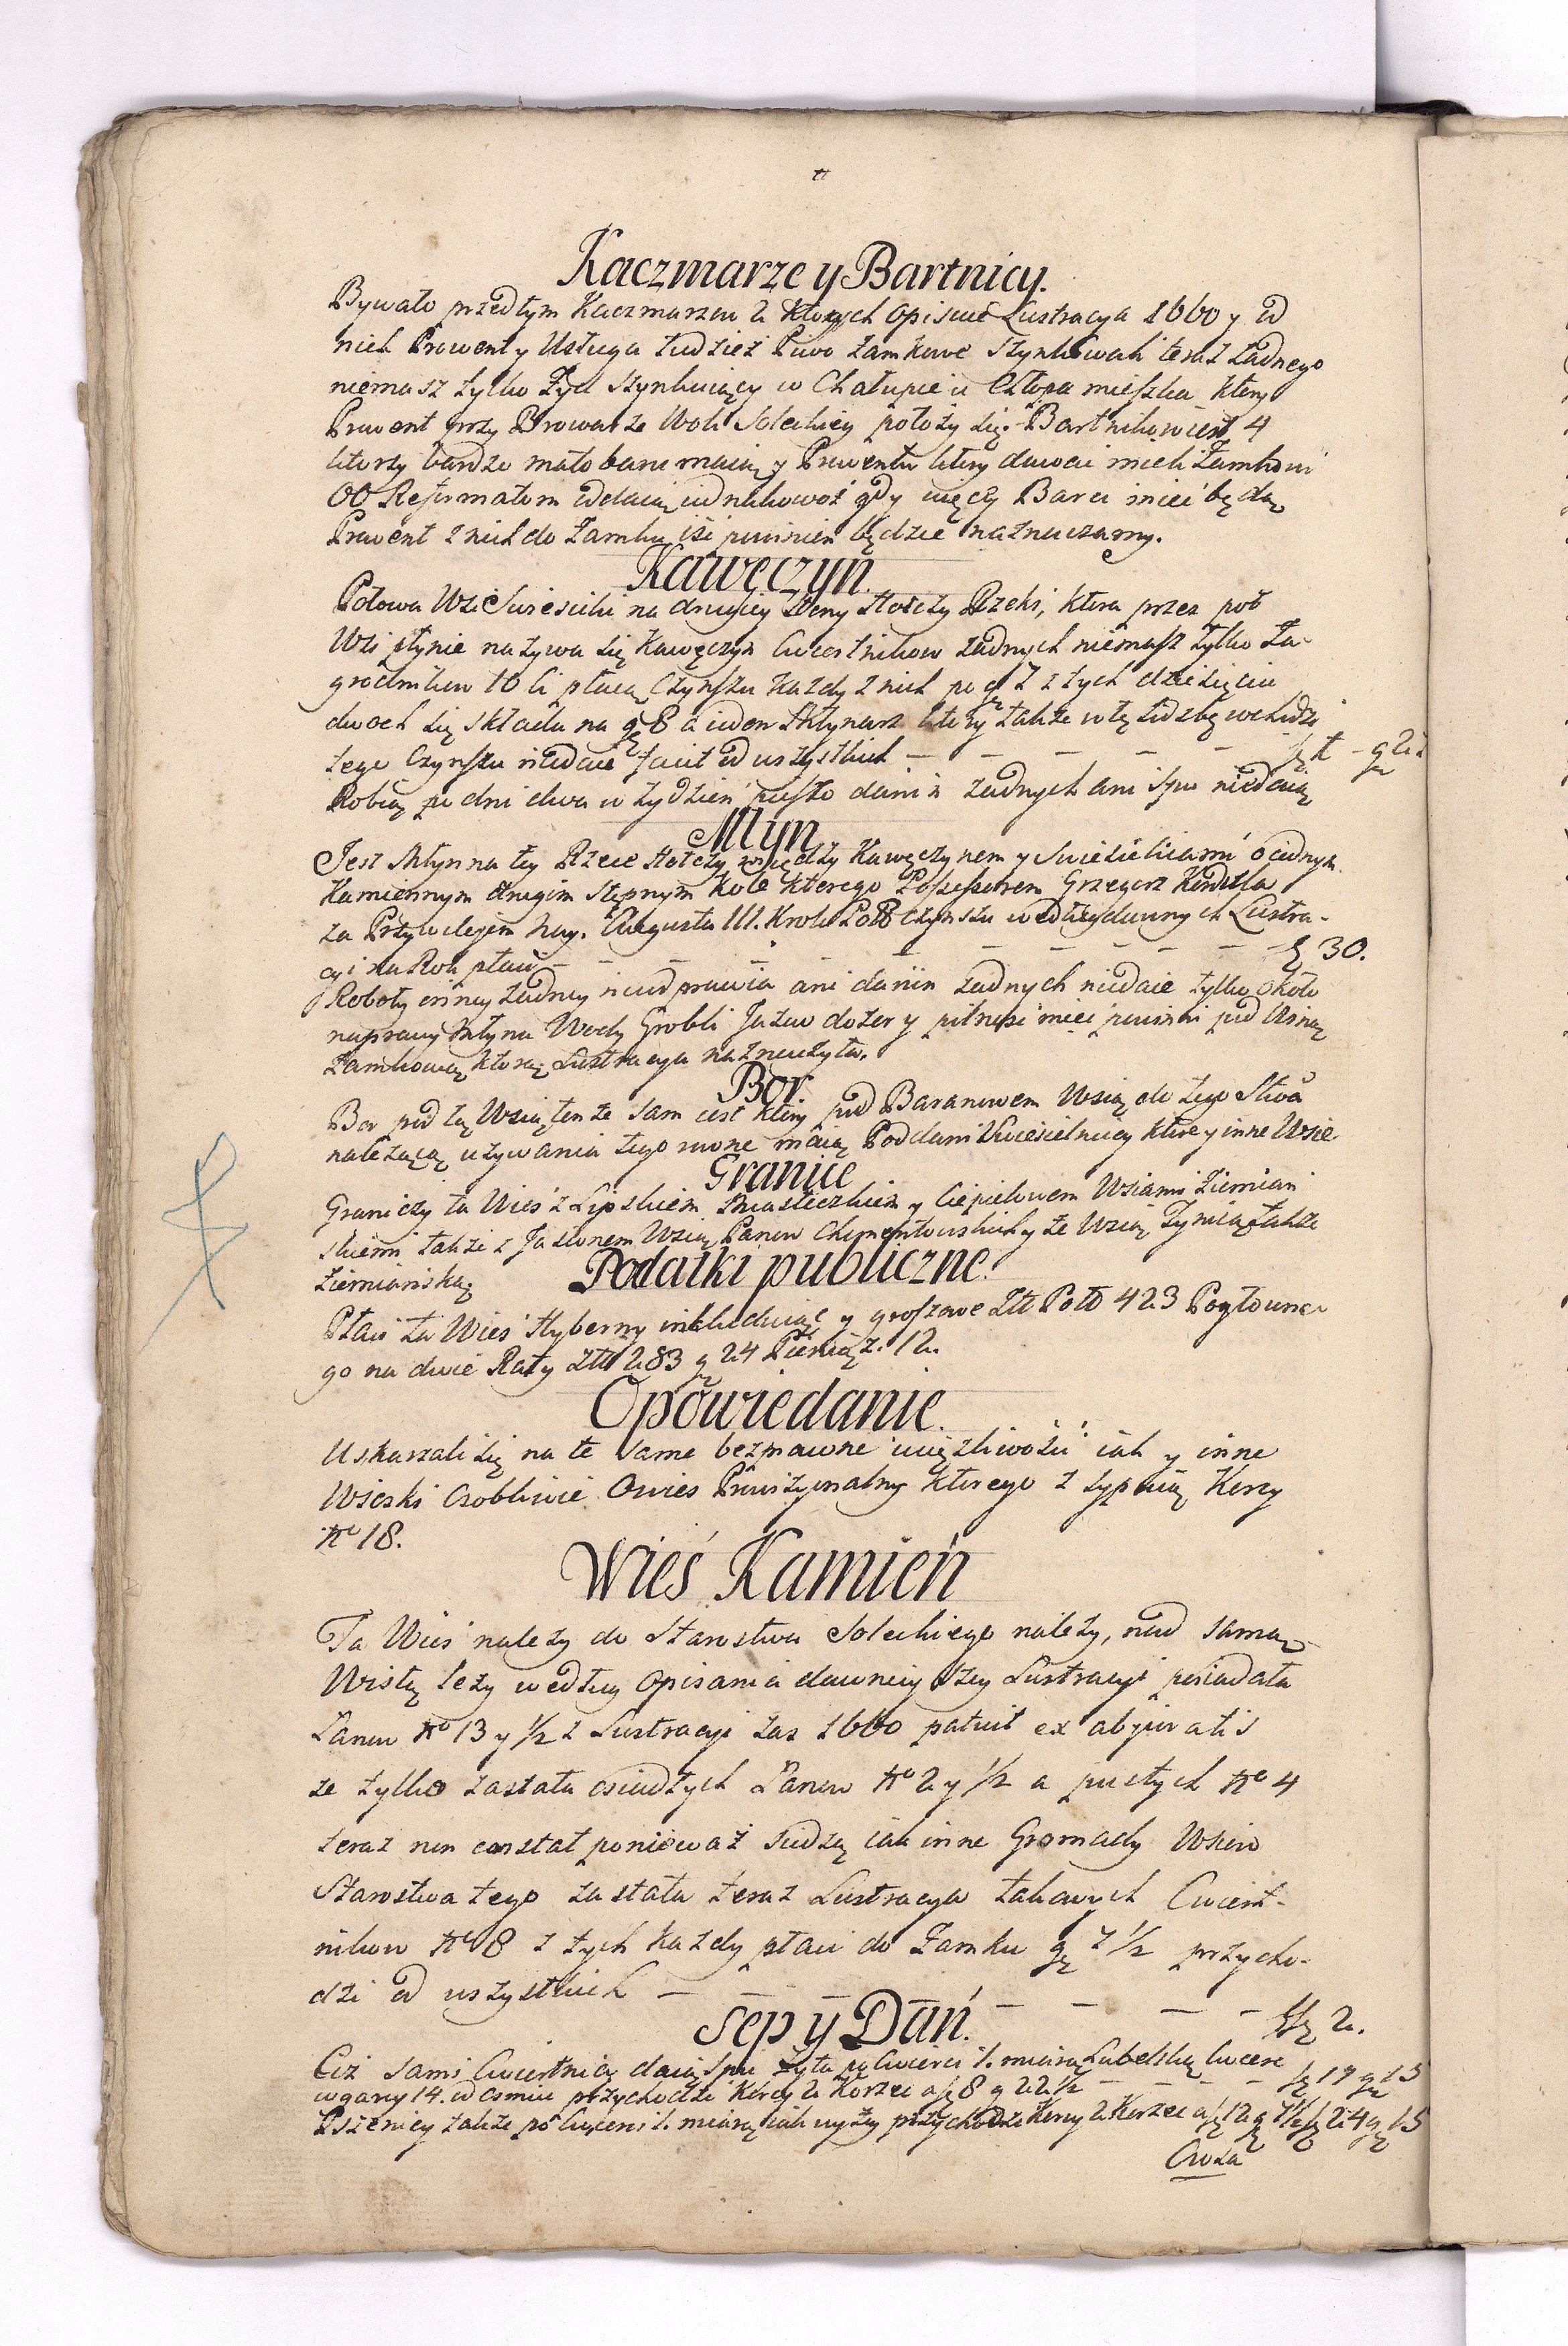 Kaczmarze y Bartnicy.
Bywało przedtym Kaczmarzow 2 których opisuie Lustracya 1660 y od
nich Prowent y Usługa tudzież Piwo Zamkowe szynkowali teraz żadnego
niemasz tylko Żyd szynkuiący w Chałupie u Chłopa mieszka ktory
Prowent przy Browarze Woli Soleckiey położy się. Bartnikow iest 4
ktorzy bardzo mało barci maią y Prowentu ktory dawać mieli Zamkowi
OO Reformatom oddaią iednakowoż gdy więcey Barci mieć będą
Prowent z nich do Zamku iść powinien będzie naznaczony.
Kawęczyn.
Połowa Wsi Swiesielic na drugiey stony Iłożczy Rzeki, ktora przez poł
Wsi płynie nazywa się Kawęczyn Cwiertnikow żadnych niemasz tylko Za-
grodnikow 10 ci płacą Czynszu każdy z nich po g 7 z tych dziesięciu
dwoch się składa na g 8 a ieden Młynarz ktory także w tę liczbę wchodzi
tego Czynszu niedaie facit od wszystkich — — — — —
Robią po dni dwa w tydzień pieszo danin żadnych ani spu niedaią
Młyn
Jest Młyn na tey Rzece między Kawęczynem y Swiesielicami o iednym
Kamiennym drugim Stępnym Kole ktorego Possessorem Grzegorz
za Przywileiem Nay. Augusta III. Krola Pol Czynszu według dawnych Lustra-
cyi na Rok płaci — — — — — — — — — 30.
Roboty inney żadney nieodprawia ani danin żadnych niedaie tylko około
naprawy Młyna Wody Grobli Jazow dozor y pilność mieć powinni pod Winą
Zamkową ktorą Lustracya naznaczyła.
Bor
Bor pod tą Wsią tenże sam iest ktory pod Baranowem Wsią do tego Stwa
należącą używania tego wolne maią Poddani Swiesielniccy ktore y inne Wsie
Granice
Graniczy ta Wieś z Lipskiem Miasteczkiem y Ciepielowem Wsiami Ziemian
skiemi także z Jasionem Wsią Panow y ze Wsią także
Ziemiańską
Podatki publiczne.
Płaci ta Wieś Hyberny inkluduiąc y groszowe Złł Pol 423 Pogłowne-
go na dwie Raty Złł 283 g 24 Pieniąż. 12.
Opowiedanie.
Uskarzali się na te same bezprawne uciążliwości iak y inne
Wioski osobliwie Owies Prowizyonalny ktorego z sypuią Korcy
No 18.
Wieś Kamień
Ta Wieś należy do Starostwa Soleckiego należy, nad samą
Wisłą leży według opisania dawnieyszey Lustracyi posiadała
Łanow No 13 y 1/2 z Lustracyi zaś 1660 patuit ex abjuratis
że tylko zastała osiadłych Łanow No 2 y 1/2 a pustych No 4
teraz non constat ponieważ siedzą iak inne Gromady Wsiow
Starostwa tego zastała teraz Lustracya takowych Cwiert-
nikow No 8 z tych każdy płaci do Zamku g 7 1/2 przycho-
dzi od wszystkich — — — — — — 2.
Sep y Dań.
Ciż sami Cwiertnicy daią Spu Żyta po Cwierci 1. miarą Lubelską Cwierć
w gary 14. od osmiu przychodzi Korcy 2 Korzec a 8 g 22 1/2 — — — 17 g 15
Pszenicy także po Cwierci 1. miarą iak wyżey przychodzi Korcy 2 Korzec a 12 g 7 1/2 24 g 15
Owsa